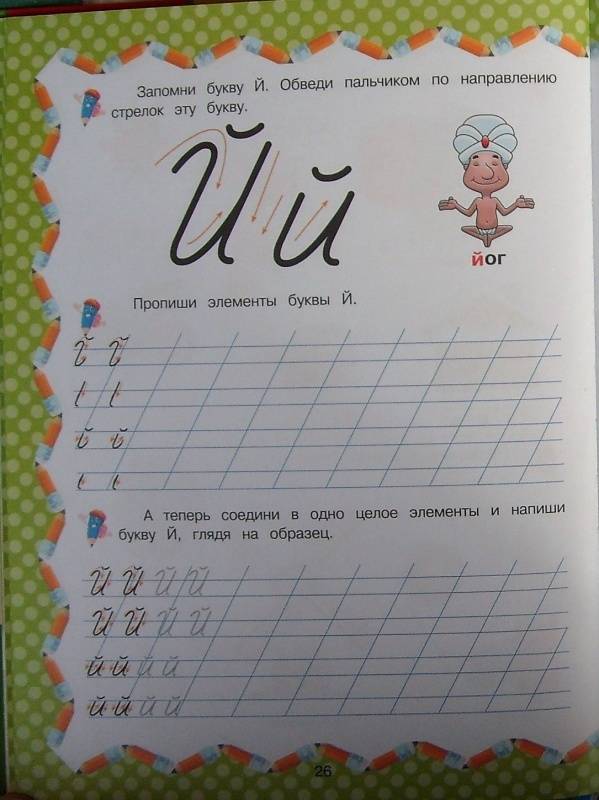 Запомни букву Й. Обведи пальчиком по направлению
стрелок эту букву.
Й й
йог
Пропиши элементы буквы Й.
А теперь соедини в одно целое элементы и напиши
букву Й, глядя на образец.
Й Й Й Й
Й Й Й Й
й й й й
й й й й
26